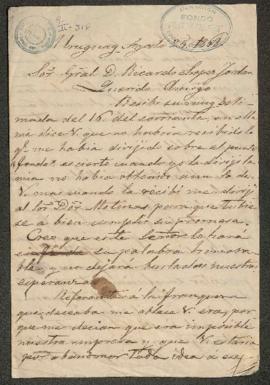 II-314
Uruguay Agosto 25, 186
Sor Gral D. Ricardo Lopez Jordan
Querido Amigo
Recibi su muy esti
mada del 15 del corriente, en ella
me dice V. que no habia recibido la
q. me habia dirijido sobre el
es cierto cuando yo le diriji la
mia no habia obtenido aun la de
V. mas cuando la recibi me diriji
al Sor Dor Molinas para que tubie
se a bien cumplir su promesa.
Creo que este Señor lo hará
su palabra honora
ble, y no dejará burladas nuestras
esperanzas
Referente á la franqueza
que deseaba me ablase V. era, por
que me decian que era imposible
nuestra empresa y que V. estaria
por abandonar toda idea á su